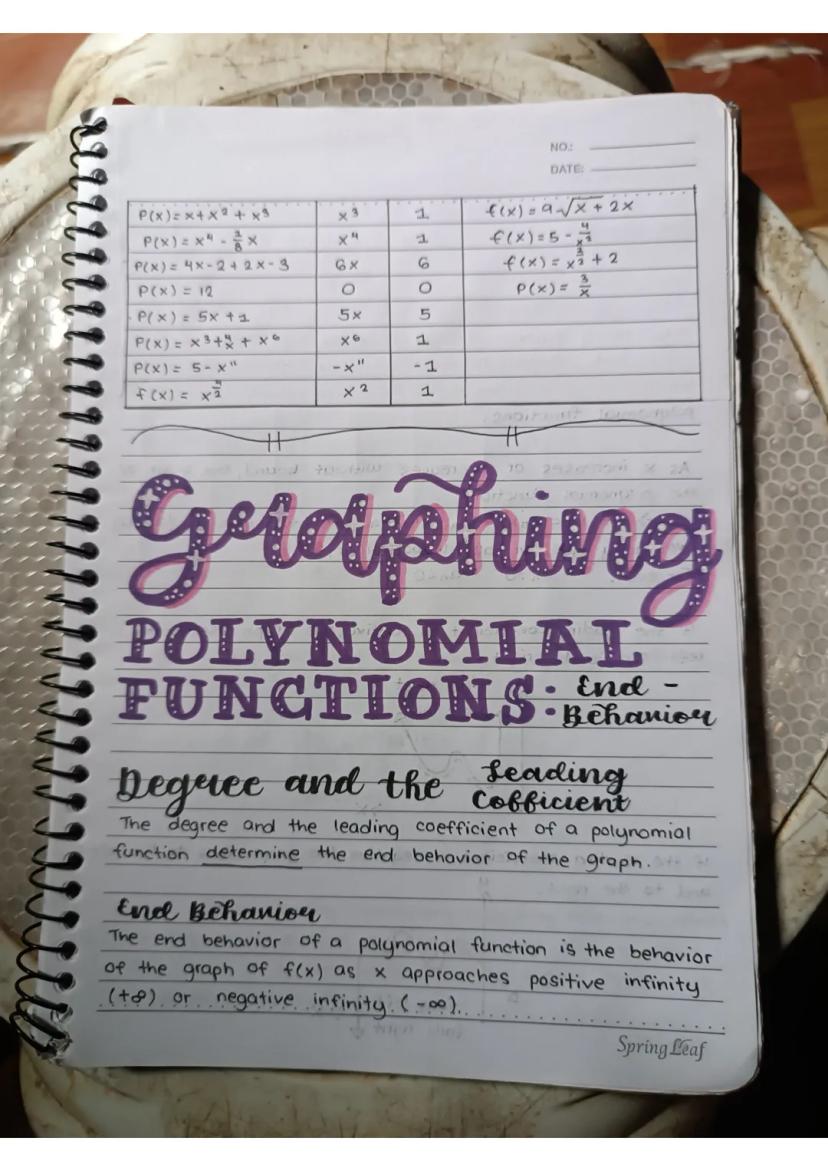 NO.:
DATE:
P(x) = x + x² + x³ x³ 1 f(x) = 9√x + 2x
P(x) = x⁴ - 3/8 x x⁴ 1 f(x) = 5 - 4/x³
P(x) = 4x - 2 + 2x - 3 6x 6 f(x) = x^(3/2) + 2
P(x) = 12 0 0 P(x) = 3/x
P(x) = 5x + 1 5x 5
P(x) = x³ + 4/x + x⁶ x⁶ 1
P(x) = 5 - x¹¹ -x¹¹ -1
f(x) = x^(4/2) x² 1
Graphing
POLYNOMIAL
FUNCTIONS: End -
Behavior
Degree and the Leading
Cofficient
The degree and the leading coefficient of a polynomial
function determine the end behavior of the graph.
End Behavior
The end behavior of a polynomial function is the behavior
of the graph of f(x) as x approaches positive infinity
(+∞) or negative infinity (-∞).
Spring Leaf